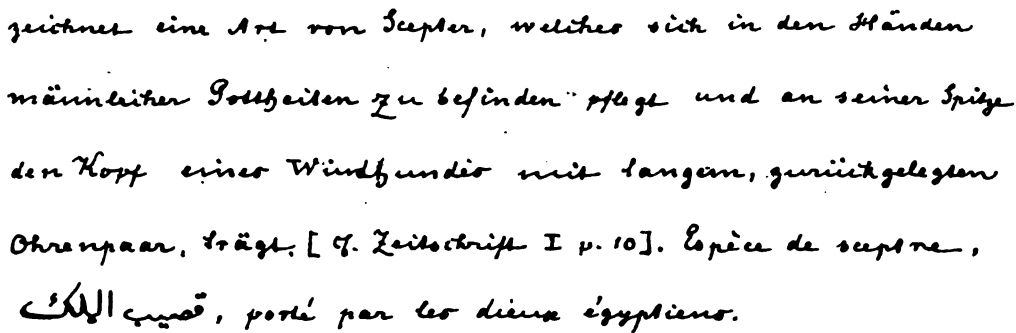 zeichnet eine Art von Scepter, welches sich in den Händen
männlicher Gottheiten zu befinden pflegt und an seiner Spitze
den Kopf eines Windhundes mit langem, zurückgelegten
Ohrenpaar, trägt. [ cf. Zeitschrift I p. 10]. Espèce de sceptre,
قصيب الملك, porté par les dieux égyptiens.